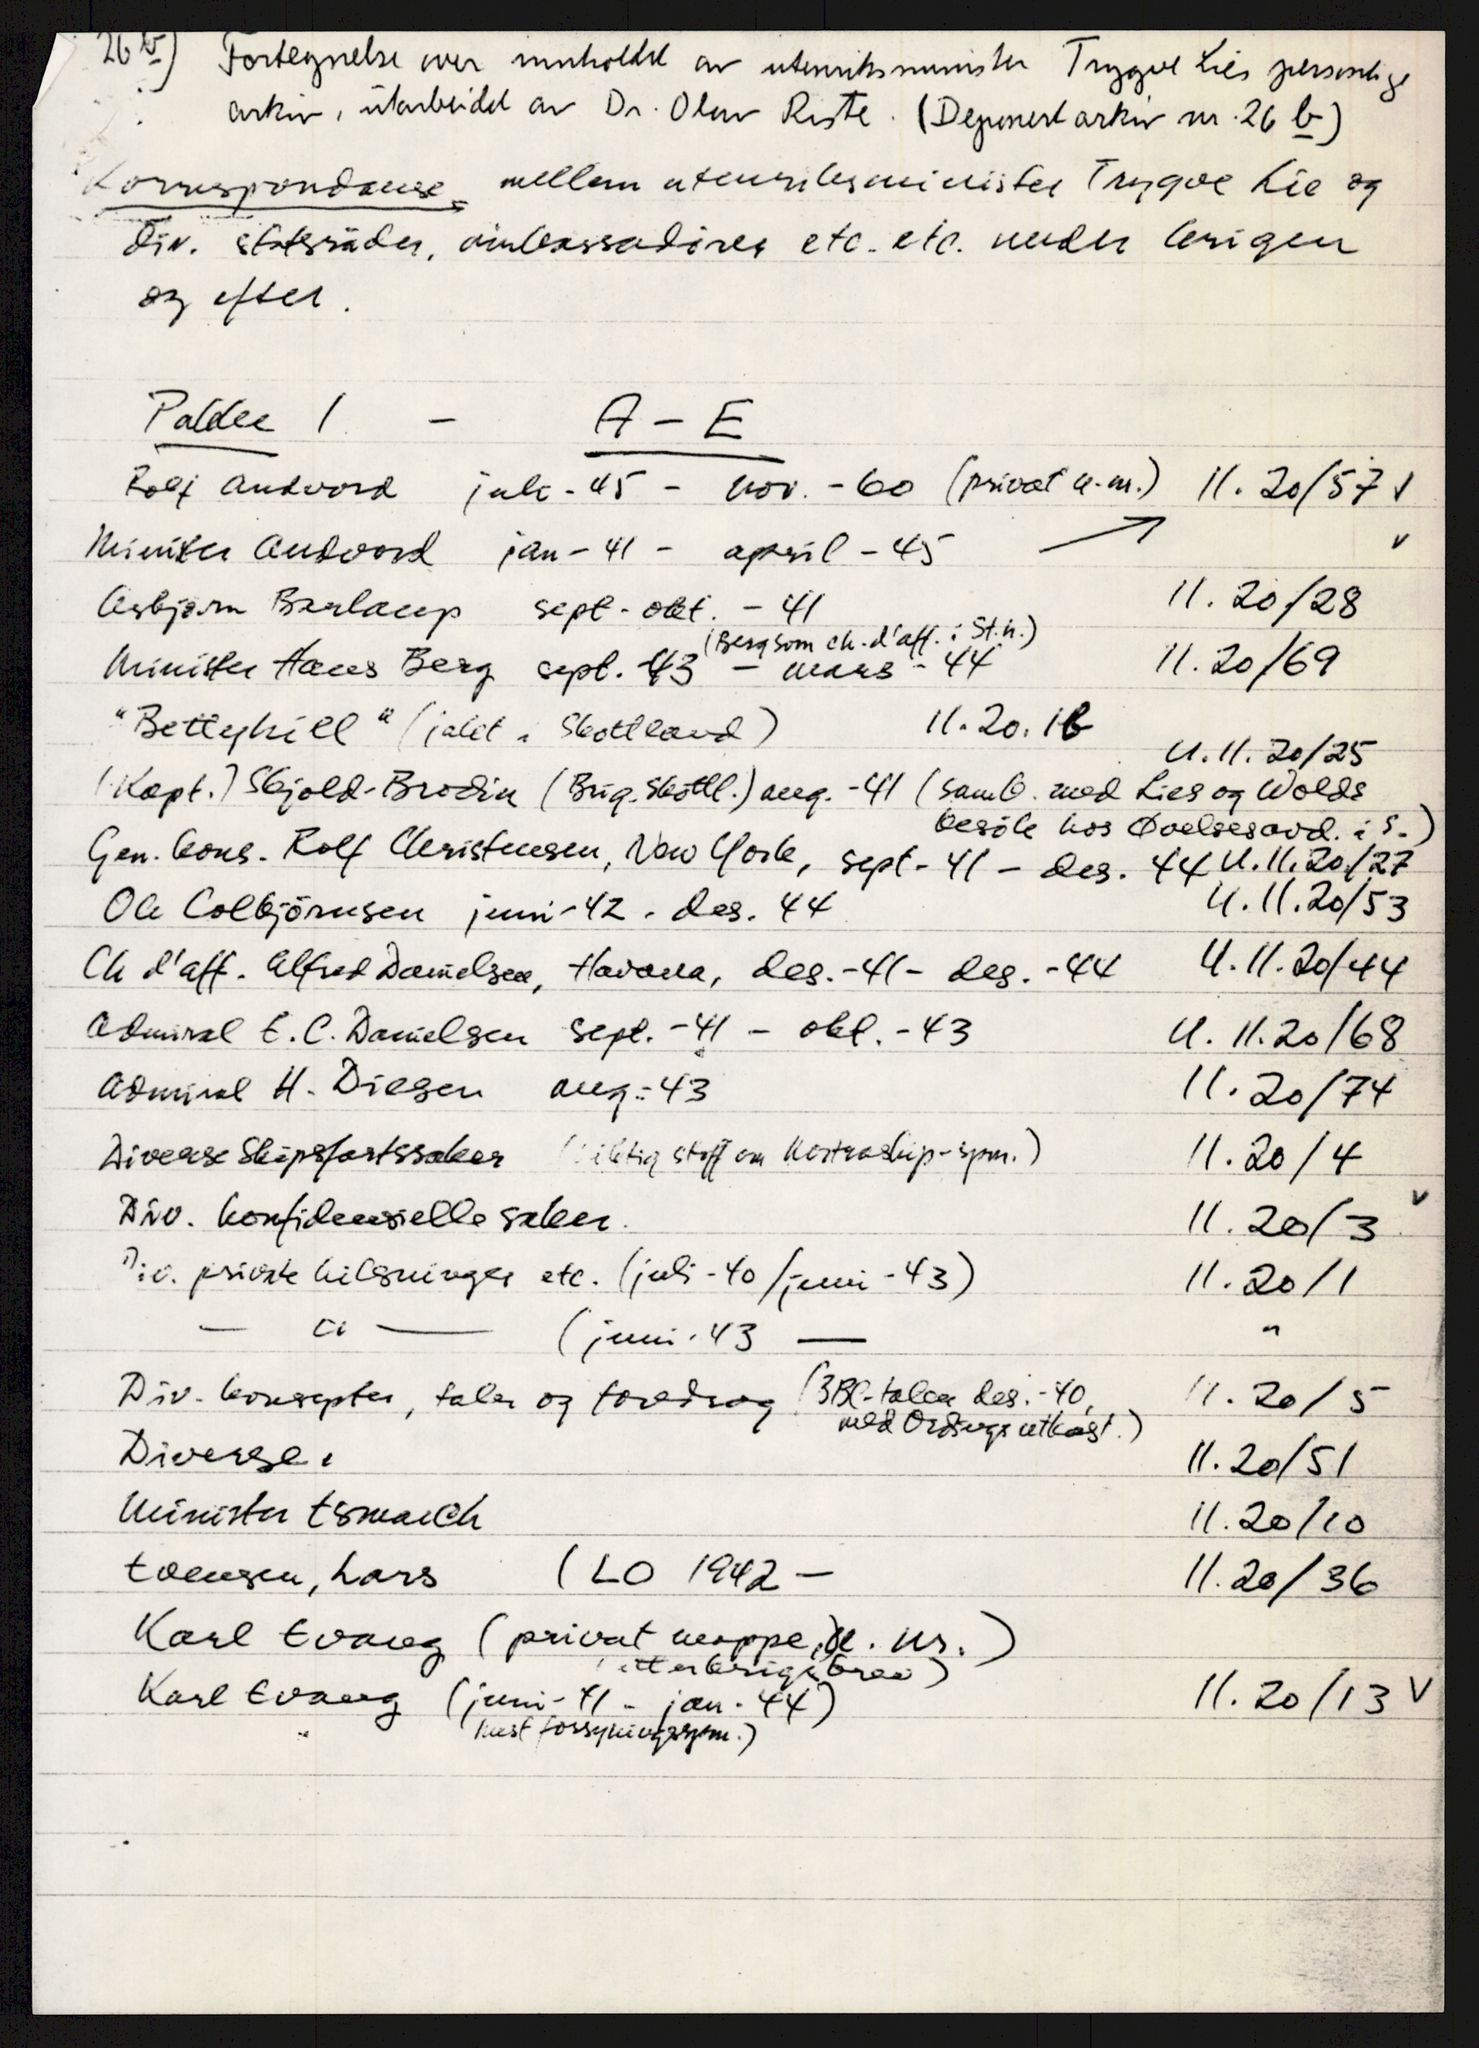 26 b) Fortegnelse over innholdet av utenriksminister Trygve Lies personlige
arkiv, utarbeidet av Dr. Olav Riste. (Deponert arkiv nr. 26 b)
Korrespondanse mellem utenriksminister Trygve Lie og
div. statsråder, ambassadører etc. etc. under krigen
og efter.
Pakke 1 - A - E
Rolf Andvord juli - 45 - nov. - 60 (privat u. nr.) 11. 20/57 v
Minister Andvord jan - 41 - april - 45 v
Asbjørn Barlaup sept - okt. - 41 11. 20/28
(Berg som ch. d'aff. i St.h.)
Minister Hans Berg sept. - 43 - mars - 44 11. 20/69
"Bettyhill" (jakt i Skottland) 11. 20. 16
U. 11. 20/25
(Kapt.) Skjold-Brodin (Brig. Skottl.) aug. - 41 (samb. med Lies og Wolds
besök hos Øvelsesavd. i S.)
Gen. kons. Rolf Christensen, New York, sept - 41 - des. 44 U. 11. 20/27
Ole Colbjörnsen juni - 42 - des. 44 U. 11. 20/53
Ch d'aff. Alfred Danielsen, Havana, des. - 41 - des. - 44 U. 11. 20/44
Admiral E. C. Danielsen sept. - 41 - okt. - 43 U. 11. 20/68
Admiral H. Diesen aug. - 43 11. 20/74
Diverse Skipsfartssaker (viktig stoff om Nortraship-spm.) 11. 20/4
Div. konfidensielle saker. 11. 20/3 v
Div. private hilsninger etc. (juli - 40 / juni - 43) 11. 20/1
— " — (juni - 43 — "
Div. konsepter, taler og foredrag (BBC-talen des. - 40, 11. 20/5
med Ordings utkast.)
Diverse. 11. 20/51
Minister Esmarch 11. 20/10
Evensen, Lars (LO 1942 - 11. 20/36
Karl Evang (privat mappe, u. nr.)
(etterkrigsbrev)
Karl Evang (juni - 41 - jan - 44) 11. 20/13 V
mest forsyningsspm.)